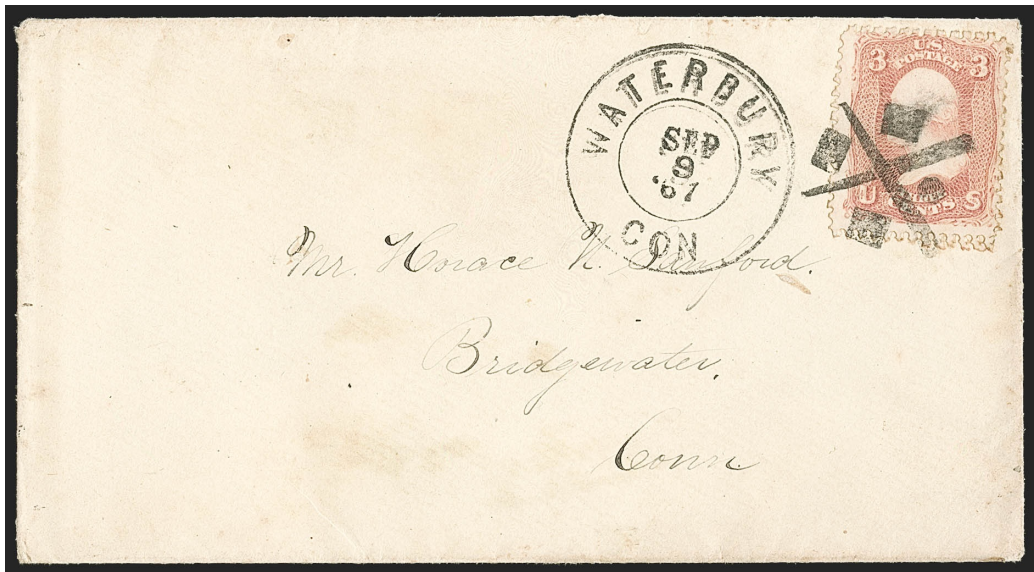 WATERBURY
SEP
9
'67
CON
3 U.S. POSTAGE 3
U CENTS S
Mr. Horace N. Sanford.
Bridgewater.
Conn.